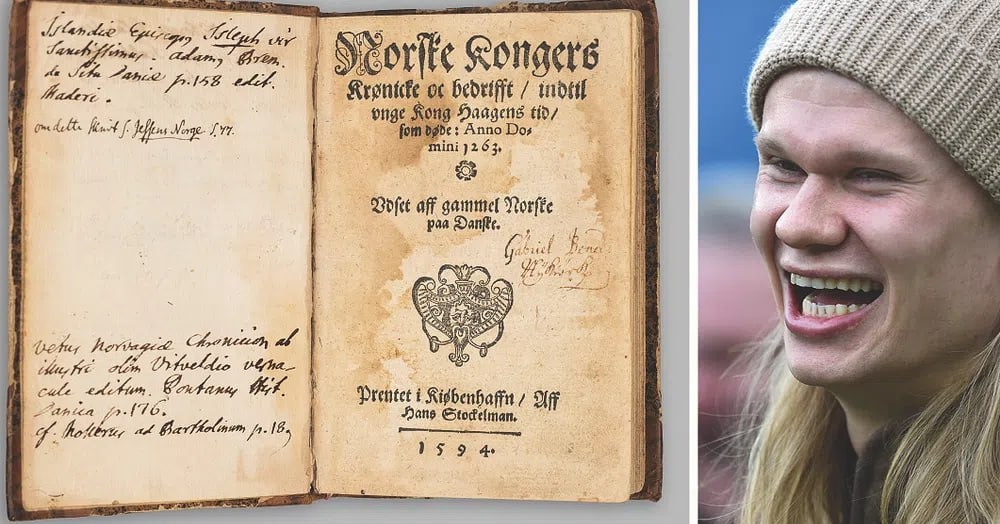 Islandiæ Episcop⁹ Isleph vir
Sanctissimus. adam⁹ Brem.
de Situ Daniæ p.158 edit.
Maderi.
om dette skrift s. Jessens Norge S. 77.
vetus Norvagiæ Chronicon ab
illustri olim Vitveldio verna-
cule editum. Pontanus Hist.
Danica p.176.
cf. Notterus ad Bartholinum p.18,
Norske Kongers
Krønicke oc bedrifft / indtil
vnge Kong Haagens tid /
som døde: Anno Do-
mini 1263.
Vdset aff gammel Norske
paa Danske.
Gabriel
Prentet i Kiøbenhaffn / Aff
Hans Stockelman.
1594.